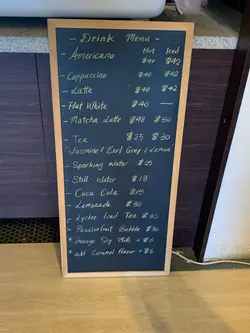 - Drink Menu -
Hot Iced
- Americano $40 $42
- Cappuccino $40 $42
- Latte $40 $42
- Flat White $40 —
- Matcha Latte $48 $50
- Tea $25 $30
- Jasmine / Earl Grey / Lemon
- Sparking Water $25
- Still Water $18
- Coca Cola $15
- Lemonade $30
- Lychee Iced Tea $30
- Passionfruit Bubble $30
* change Soy Milk + $6
* add Caramel flavor + $6